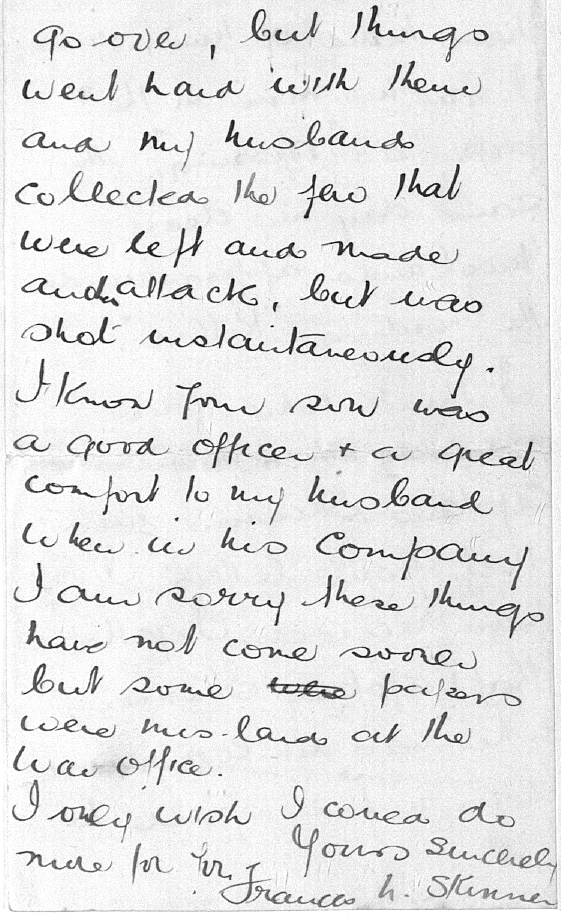 go over, but things
went hard with them
and my husband
collected the few that
were left and made
and attack, but was
shot instantaneously.
I know your son was
a good officer + a great
comfort to my husband
when in his Company
I am sorry these things
have not come sooner
but some papers
were mis-laid at the
War office.
I only wish I could do
more for you.
Yours Sincerely
Frances h. Skinner